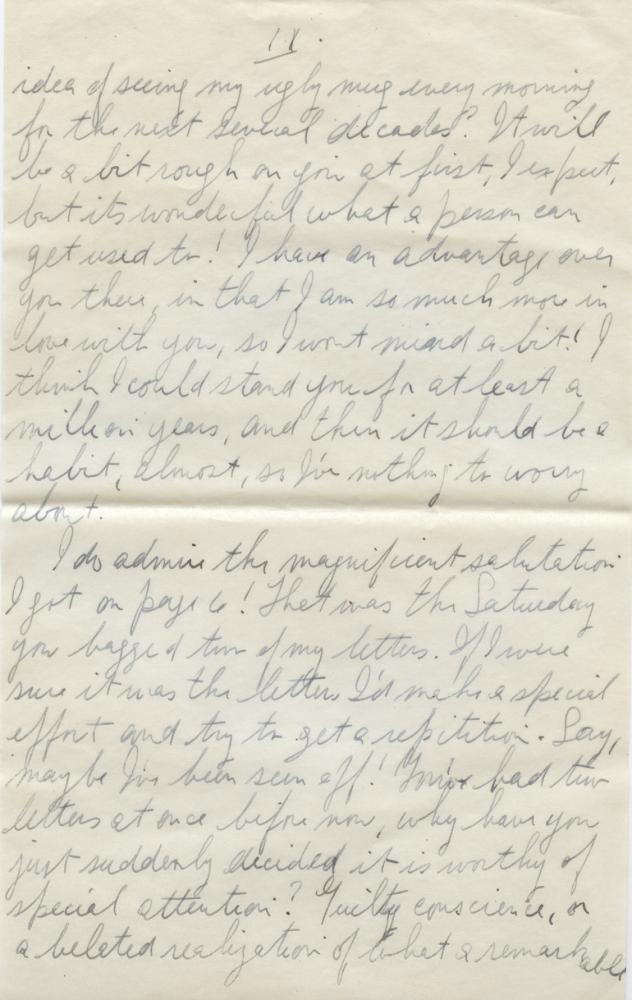 IX.
idea of seeing my ugly mug every morning
for the next several decades? It will
be a bit rough on you at first, I expect,
but its wonderful what a person can
get used to! I have an advantage over
you there, in that I am so much more in
love with you, so I wont mind a bit! I
think I could stand you for at least a
million years, and then it should be a
habit, almost, so I've nothing to worry
about.
I do admire the magnificent salutation
I got on page 6! That was the Saturday
you bagged two of my letters. If I were
sure it was the letters I'd make a special
effort and try to get a repitition. Say,
maybe I've been seen off! You've had two
letters at once before now, why have you
just suddenly decided it is worthy of
special attention? Guilty conscience, or
a belated realization of what a remarkable